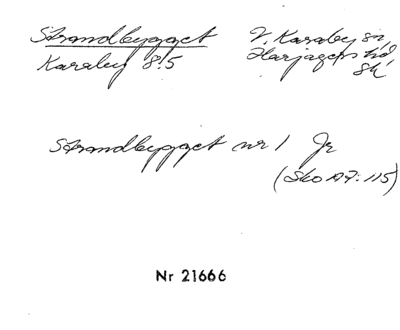 Strandbygget
Karaby 8:5
V. Karaby sn,
Harjagers hd
Sk'
Strandbygget nr 1 Jr
(Sko A7:115)
Nr 21666